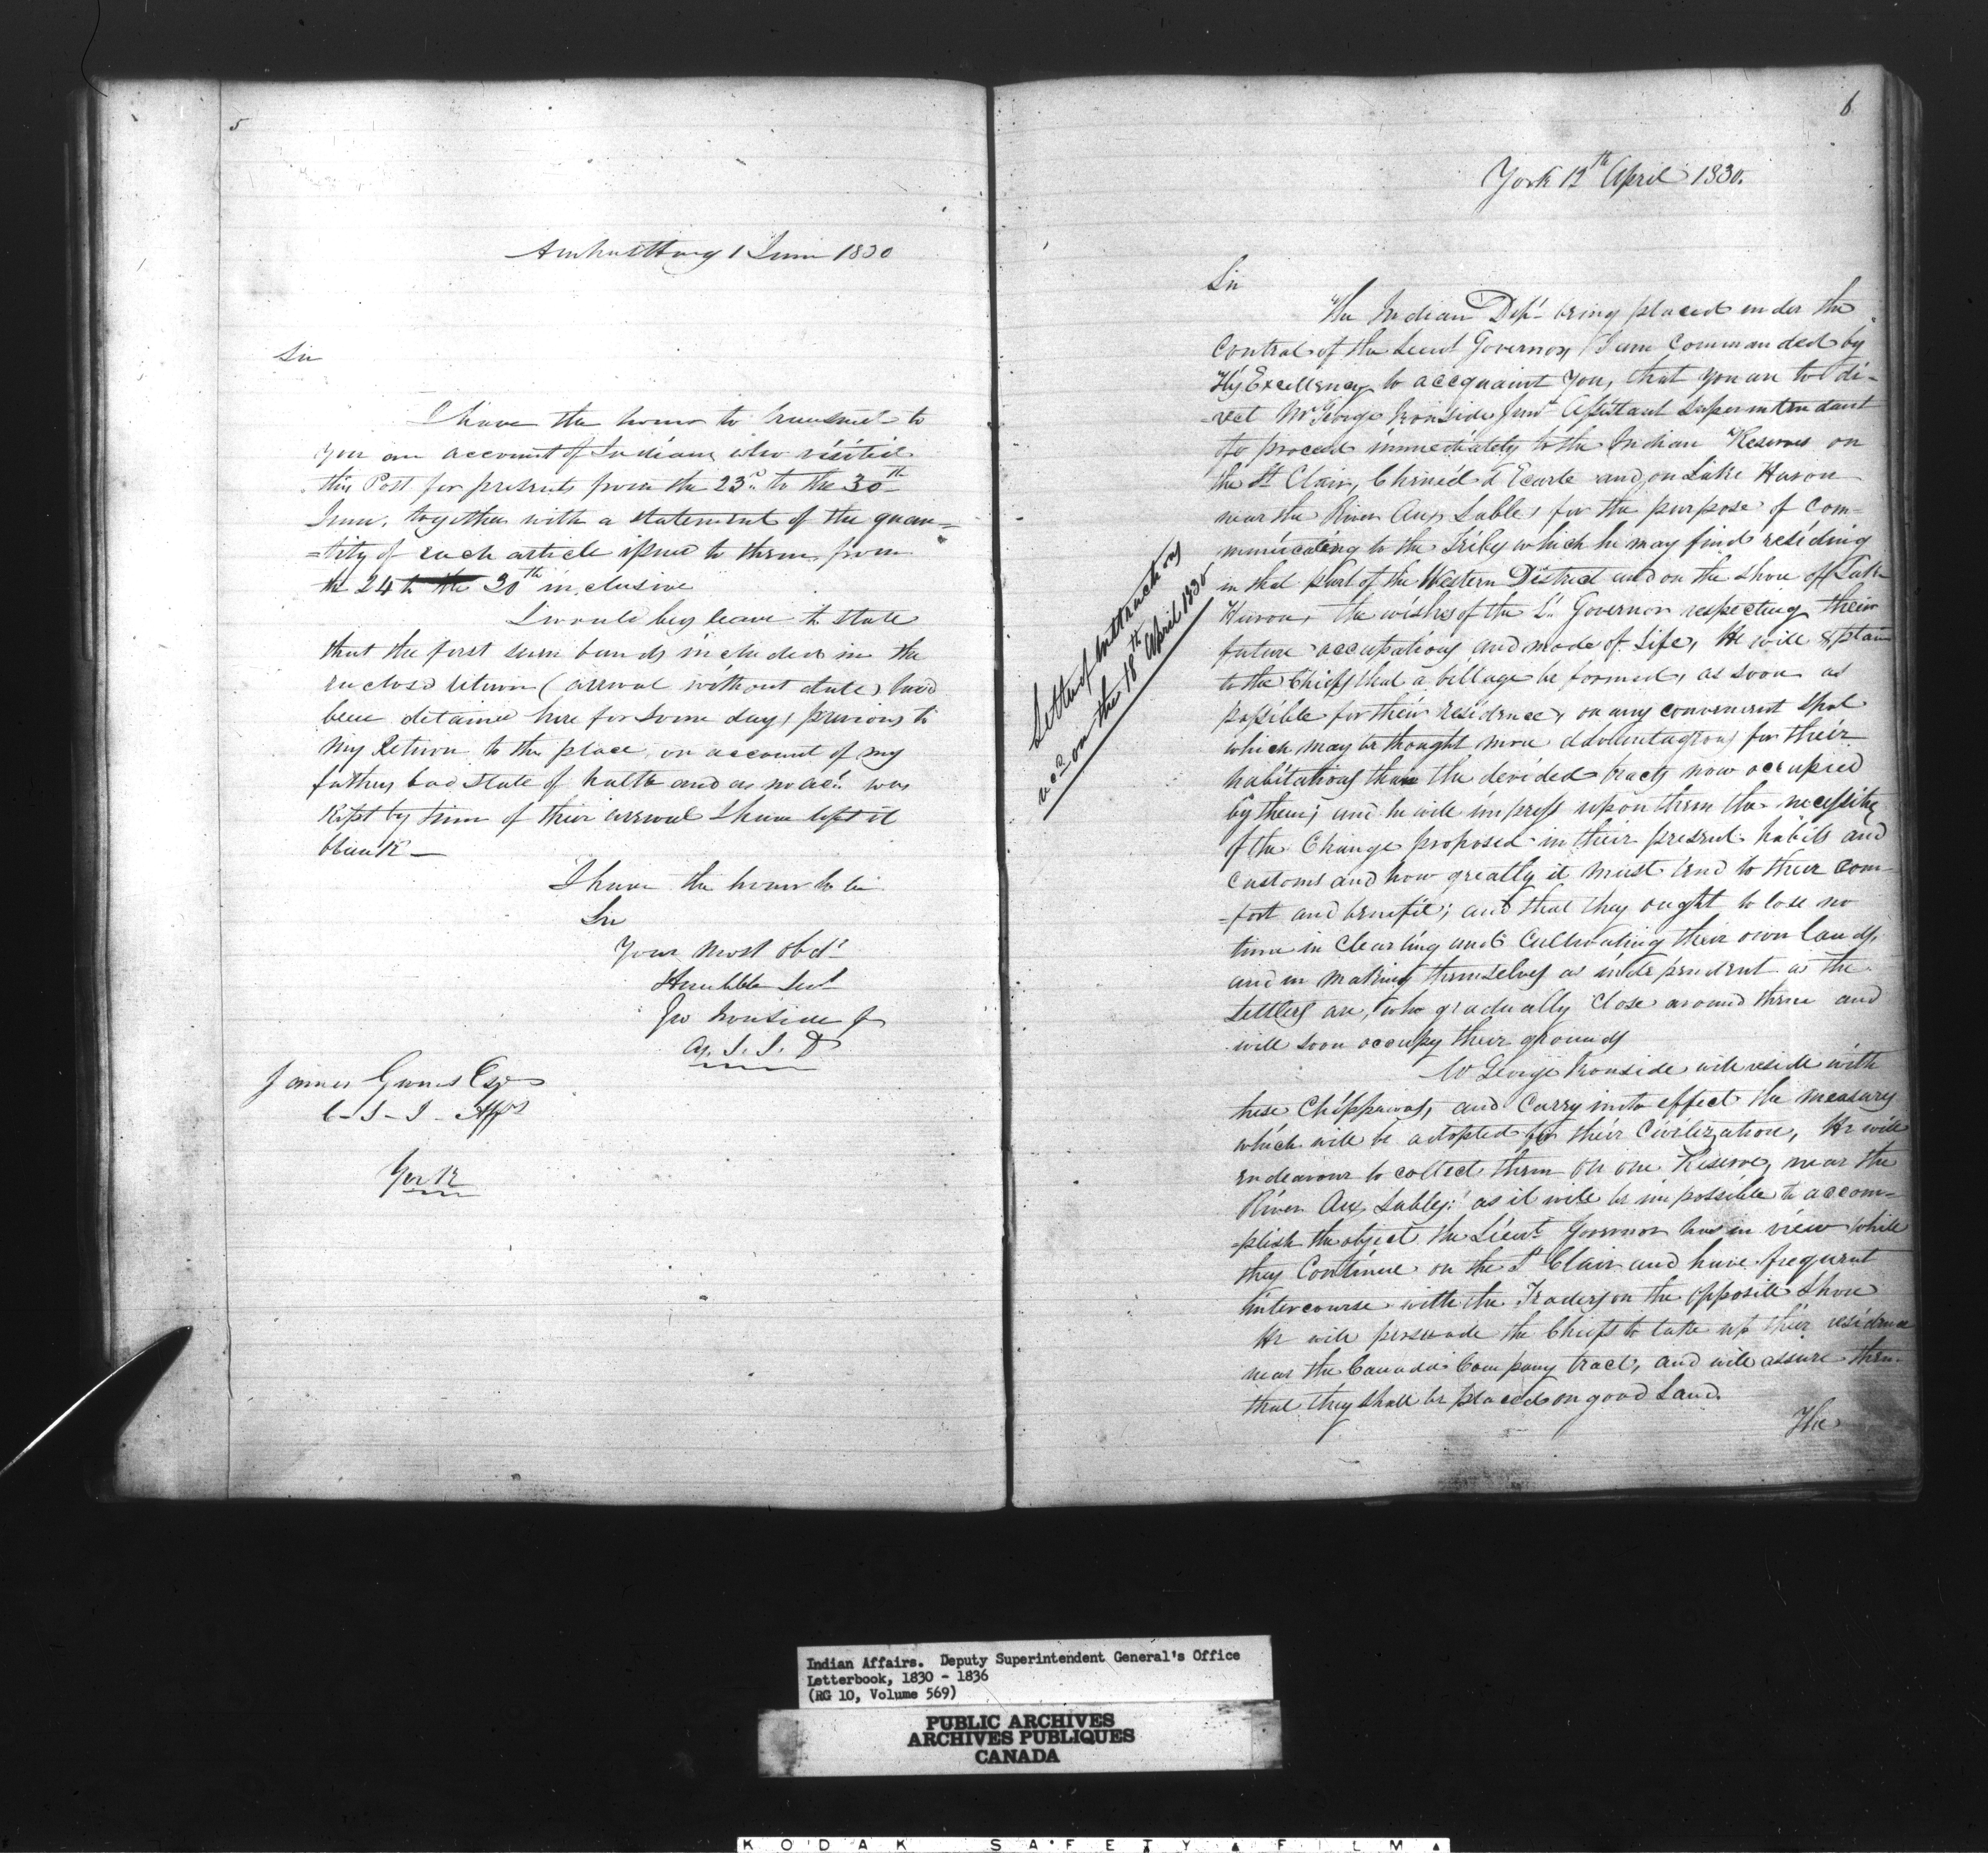 5
Amherstburg 1 June 1830
Sir
I have the honor to transmit to
you an account of Indians who visited
this Post for presents from the 23rd to the 30th
June, together with a statement of the quan=
=tity of each article issued to them from
the 24 to the 30th inclusive
I would beg leave to state
that the first seven bands included in the
enclosed return (arrival without date) had
been detained here for some days previous to
my return to the place on account of my
fathers bad state of health and as no acct was
kept by him of their arrival I have left it
blank —
I have the honor to be
Sir
Your most obdt
Humble Servt
Geo Ironside Jr
James Givins Esqr
C - S - I - Affrs
York
6
York 12th April 1830.
Sir
The Indian Dept being placed under the
Control of the Lieut Governor, I am Commanded by
His Excellency to accquaint You, that you are to di-
-rect Mr George Ironside Junr Assistant Superintendant
to proceed immediately to the Indian Reserves on
the St Clair, Chenéd d'Ecarte and on Lake Huron
near the River Aux Sables for the purpose of Com-
municating to the Tribes which he may find residing
in that Part of the Western District and on the Shore of Lake
Huron, the wishes of the Lt Governor respecting their
future occupations and mode of Life, He will explain
to the Chiefs that a village be formed, as soon as
possible for their residence, on any convenient spot
which may be thought more advantageous for their
habitations than the devided tracts now occupied
by them; and he will impress upon them the necessity
of the Change proposed in their present habits and
Customs and how greatly it must tend to their com-
=fort and benefit; and that they ought to lose no
time in Clearing and Cultivating their own lands,
and in making themselves as independent as the
Settlers are, who gradually close around them and
will soon occupy their grounds
Mr George Ironside will reside with
these Chippewas, and Carry into effect the measures
which will be adopted for their Civilization, He will
endeavour to collect them on one Reserve, near the
River Aux Sables: as it will be impossible to accom=
=plish the object the Lieut Governor has in view while
they Continue on the St Clair and have frequent
intercourse with the Traders on the opposite Shore
He will persuade the Chiefs to take up their residence
near the Canada Company tract, and will assure them
that they shall be placed on good Land.
The
Letter of Instructions
recd on the 18th April 1830
Indian Affairs. Deputy Superintendent General's Office
Letterbook, 1830 - 1836
(RG 10, Volume 569)
PUBLIC ARCHIVES
ARCHIVES PUBLIQUES
CANADA
KODAK SAFETY FILM